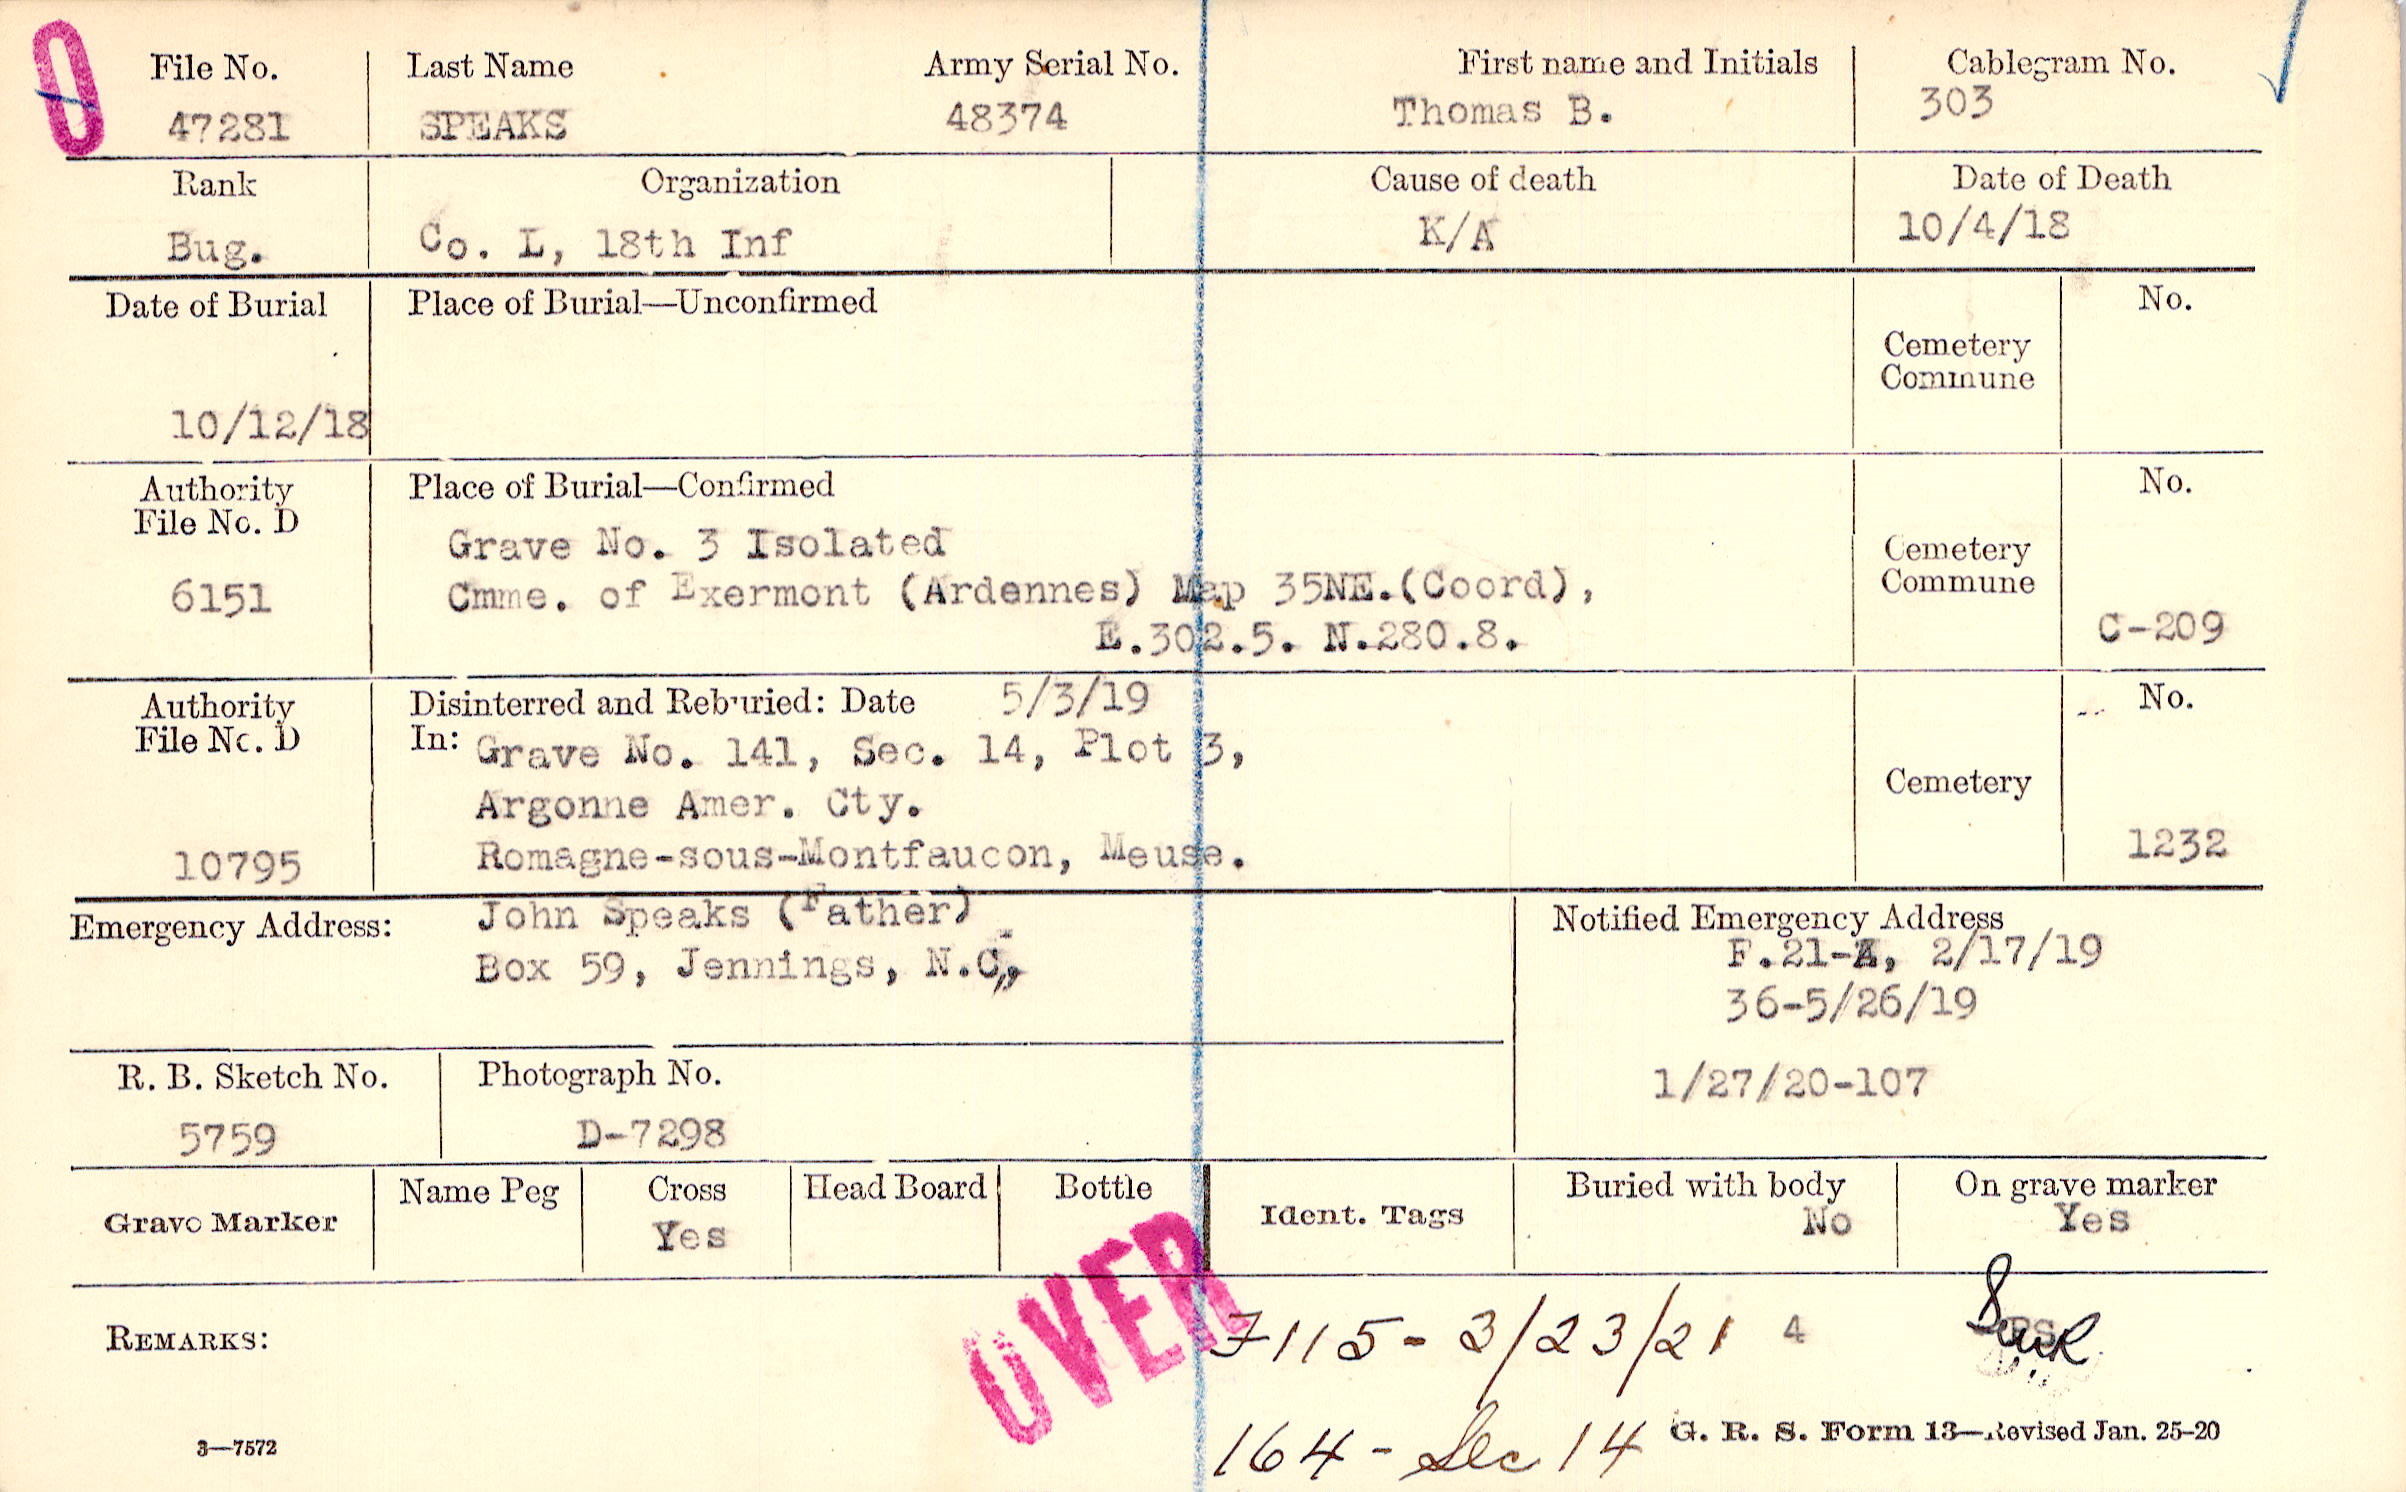 0
File No. Last Name Army Serial No. First name and Initials Cablegram No.
47281 SPEAKS 48374 Thomas B. 303
Rank Organization Cause of death Date of Death
Bug. Co. L, 18th Inf K/A 10/4/18
Date of Burial Place of Burial—Unconfirmed No.
Cemetery
Commune
10/12/18
Authority Place of Burial—Confirmed No.
File No. D
Grave No. 3 Isolated Cemetery
6151 Cmme. of Exermont (Ardennes) Map 35NE.(Coord), Commune
E.302.5. N.280.8. C-209
Authority Disinterred and Reburied: Date 5/3/19 No.
File No. D In: Grave No. 141, Sec. 14, Plot 3,
Argonne Amer. Cty. Cemetery
10795 Romagne-sous-Montfaucon, Meuse. 1232
Emergency Address: John Speaks (Father) Notified Emergency Address
Box 59, Jennings, N.C., F.21-A, 2/17/19
36-5/26/19
R. B. Sketch No. Photograph No. 1/27/20-107
5759 D-7298
Grave Marker Name Peg Cross Head Board Bottle Ident. Tags Buried with body On grave marker
Yes No Yes
OVER
REMARKS: 7115- 3/23/21 4
164 - Sec 14
3—7572 G. R. S. Form 13—Revised Jan. 25-20